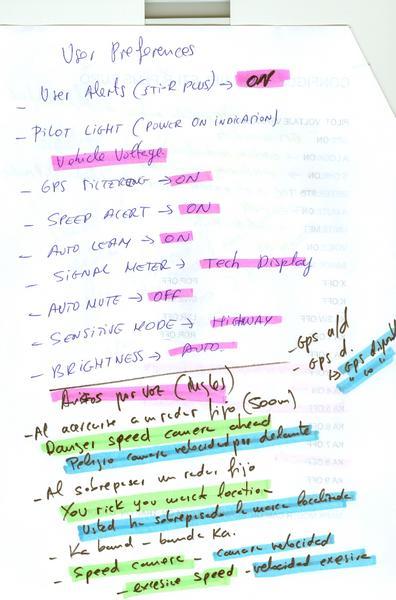 User Preferences
- User Alerts (STi-R PLUS) → ON
- PILOT LIGHT (POWER ON INDICATION)
Vehicle Voltage
- GPS FILTERING → ON
- SPEED ALERT → ON
- AUTO LEARN → ON
- SIGNAL METER → Tech Display
- AUTO MUTE → OFF
- SENSITIVE MODE → HIGHWAY
- BRIGHTNESS → AUTO
- GPS
- GPS d.
↳ GPS
Avisos por voz (Ingles)
- Al acercarse a un radar fijo (500m)
Danger speed camera ahead
Peligro camara velocidad por delante
- Al sobrepasar un radar fijo
You location
Usted ha sobrepasado la marca localizada
- Ka band - banda Ka.
- Speed camera - camara velocidad
- excesive speed - velocidad exesiva